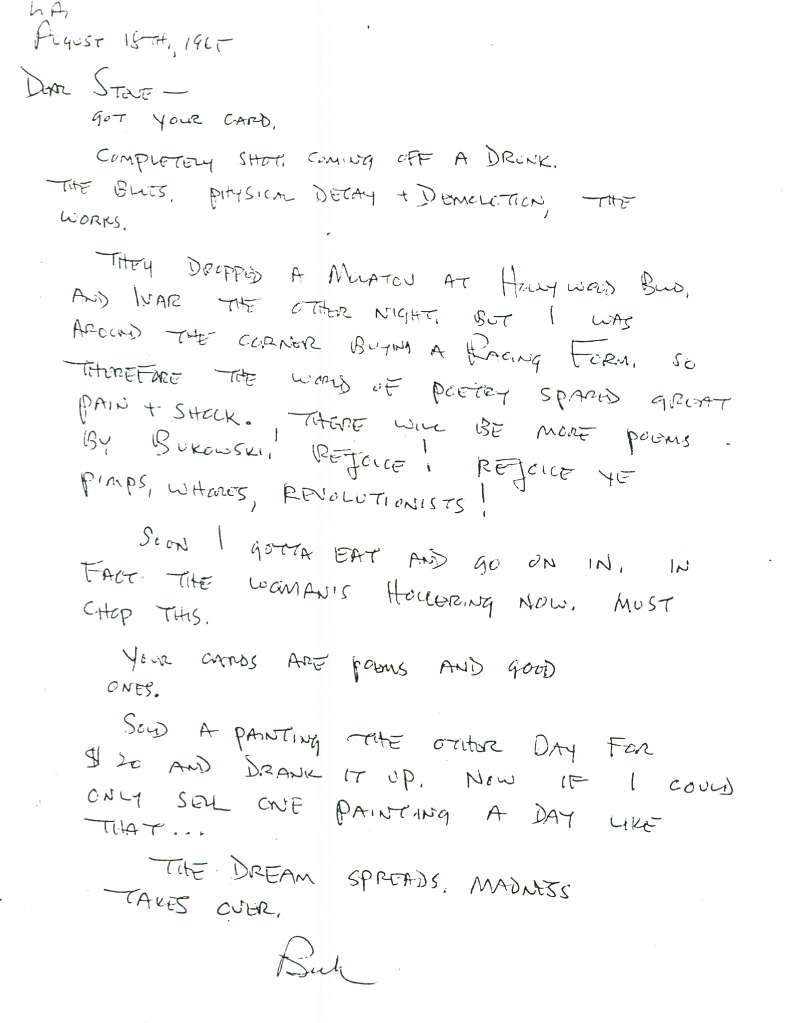 L.A.
AUGUST 15TH, 1965
DEAR STEVE —
GOT YOUR CARD.
COMPLETELY SHOT. COMING OFF A DRUNK.
THE BLUES. PHYSICAL DECAY + DEMOLITION, THE
WORKS.
THEY DROPPED A MOLOTOV AT HOLLYWOOD BLVD.
AND IVAR THE OTHER NIGHT. BUT I WAS
AROUND THE CORNER BUYING A RACING FORM. SO
THEREFORE THE WORLD OF POETRY SPARED GREAT
PAIN + SHOCK. THERE WILL BE MORE POEMS
BY BUKOWSKI! REJOICE! REJOICE YE
PIMPS, WHORES, REVOLUTIONISTS!
SOON I GOTTA EAT AND GO ON IN. IN
FACT THE WOMAN'S HOLLERING NOW. MUST
CHOP THIS.
YOUR CARDS ARE POEMS AND GOOD
ONES.
SOLD A PAINTING THE OTHER DAY FOR
$20 AND DRANK IT UP. NOW IF I COULD
ONLY SELL ONE PAINTING A DAY LIKE
THAT...
THE DREAM SPREADS. MADNESS
TAKES OVER.
Buk